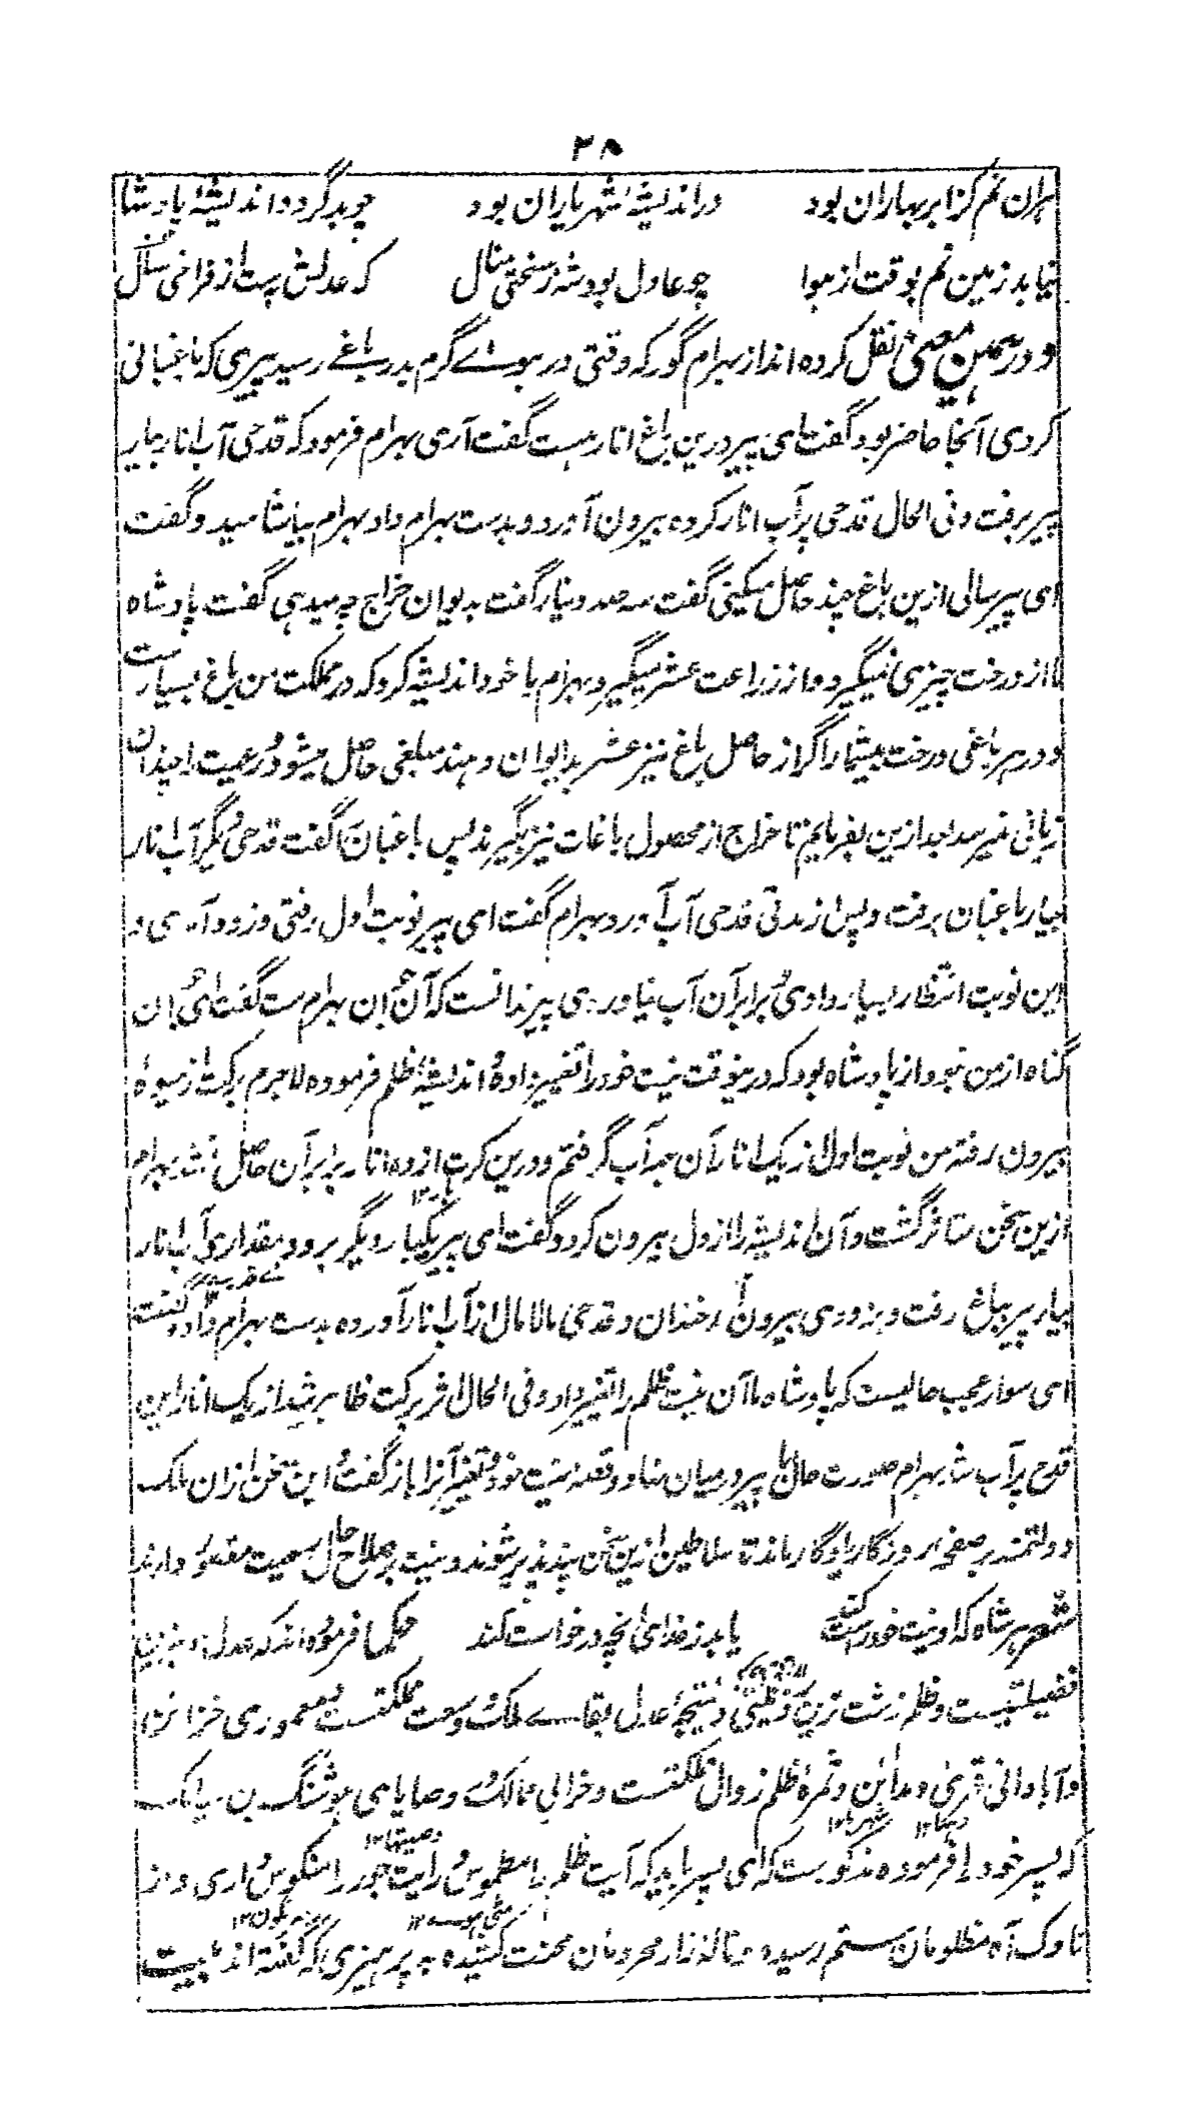 ۳۸
هران نم کز ابر بهاران بود در اندیشهٔ شهریاران بود چو بد گردد اندیشهٔ پادشا
نیابد زمین نم بوقت از هوا چو عادل بود شه ز سختی منال که عدلش بهست از فراخی سال
و در همین معنی نقل کرده اند از بهرام گور که وقتی در هوای گرم بدر باغی رسید پیری که باغبانی
کردی آنجا حاضر بود گفت ای پیر درین باغ انار هست گفت آری بهرام فرمود که قدحی آب انار بیار
پیر برفت و فی الحال قدحی پر آب انار کرده بیرون آورد و بدست بهرام داد بهرام بیاشامید و گفت
ای پیر سالی ازین باغ چند حاصل میکنی گفت سه صد دینار گفت بدیوان خراج چه میدهی گفت پادشاه
ما از درخت چیزی نمیگیرد و از زراعت عشر میگیرد بهرام با خود اندیشه کرد که در مملکت من باغ بسیارست
و در هر باغی درخت بیشمار اگر از حاصل باغ نیز عشر بدیوان دهند مبلغی حاصل میشود و رعیت را چندان
زیانی نمیرسد بعد ازین بفرمایم تا خراج از محصول باغات نیز بگیرند پس باغبان را گفت قدحی دیگر آب انار
بیار باغبان برفت و پس از مدتی قدحی آب آورد بهرام گفت ای پیر نوبت اول رفتی و زود آمدی و
این نوبت انتظار بسیار دادی و برابر آن آب نیاوردی پیر ندانست که آن جوان بهرام ست گفت ای جوان
گناه از من نبود از پادشاه بود که درینوقت نیت خود را تغییر داده و اندیشهٔ ظلم فرموده لاجرم برکت از میوهٔ
بیرون رفته من نوبت اول از یک انار آن همه آب گرفتم و درین کرت از ده انار برابر آن حاصل نشد بهرام
ازین سخن متاثر گشت و آن اندیشه را از دل بیرون کرد و گفت ای پیر یکبار دیگر برو و مقداری آب انار
بیار پیر بباغ رفت و بزودی بیرون آمد خندان و قدحی مالامال از آب انار آورده بدست بهرام داد و گفت
ای سوار عجب حالیست که پادشاه ما آن نیت ظلم را تغییر داد و فی الحال اثر برکت ظاهر شد از یک انار این
قدح پر آب شد بهرام صورت حال با پیر در میان نهاد و قصهٔ نیت خود و تغییر آنرا باز گفت و این سخن از ان ملک
دولتمند بر صفحهٔ روزگار یادگار ماند تا سلاطین ازین سخن پند پذیر شوند و نیت بر صلاح حال رعیت مقصور دارند
شعر هر شاه که او نیت خود راست کند یابد ز خدای آنچه درخواست کند حکما فرموده اند که عدل بهترین
فضیلتیست و ظلم زشت ترین رذیلتی و نتیجهٔ عدل بقای ملک و وسعت مملکتست و معموری خزائن
و آبادانی قری و مداین و ثمرهٔ ظلم زوال مملکتست و خرابی ممالک و در وصایای هوشنگ بن سیامک
که پسر خود را فرموده مذکورست که ای پسر باید که آیت ظلم را مطموس و رایت جور را منکوس داری و از
ناوک آه مظلومان ستم رسیده و نالهٔ زار محرومان محنت کشیده بپرهیزی که گفته اند بیت